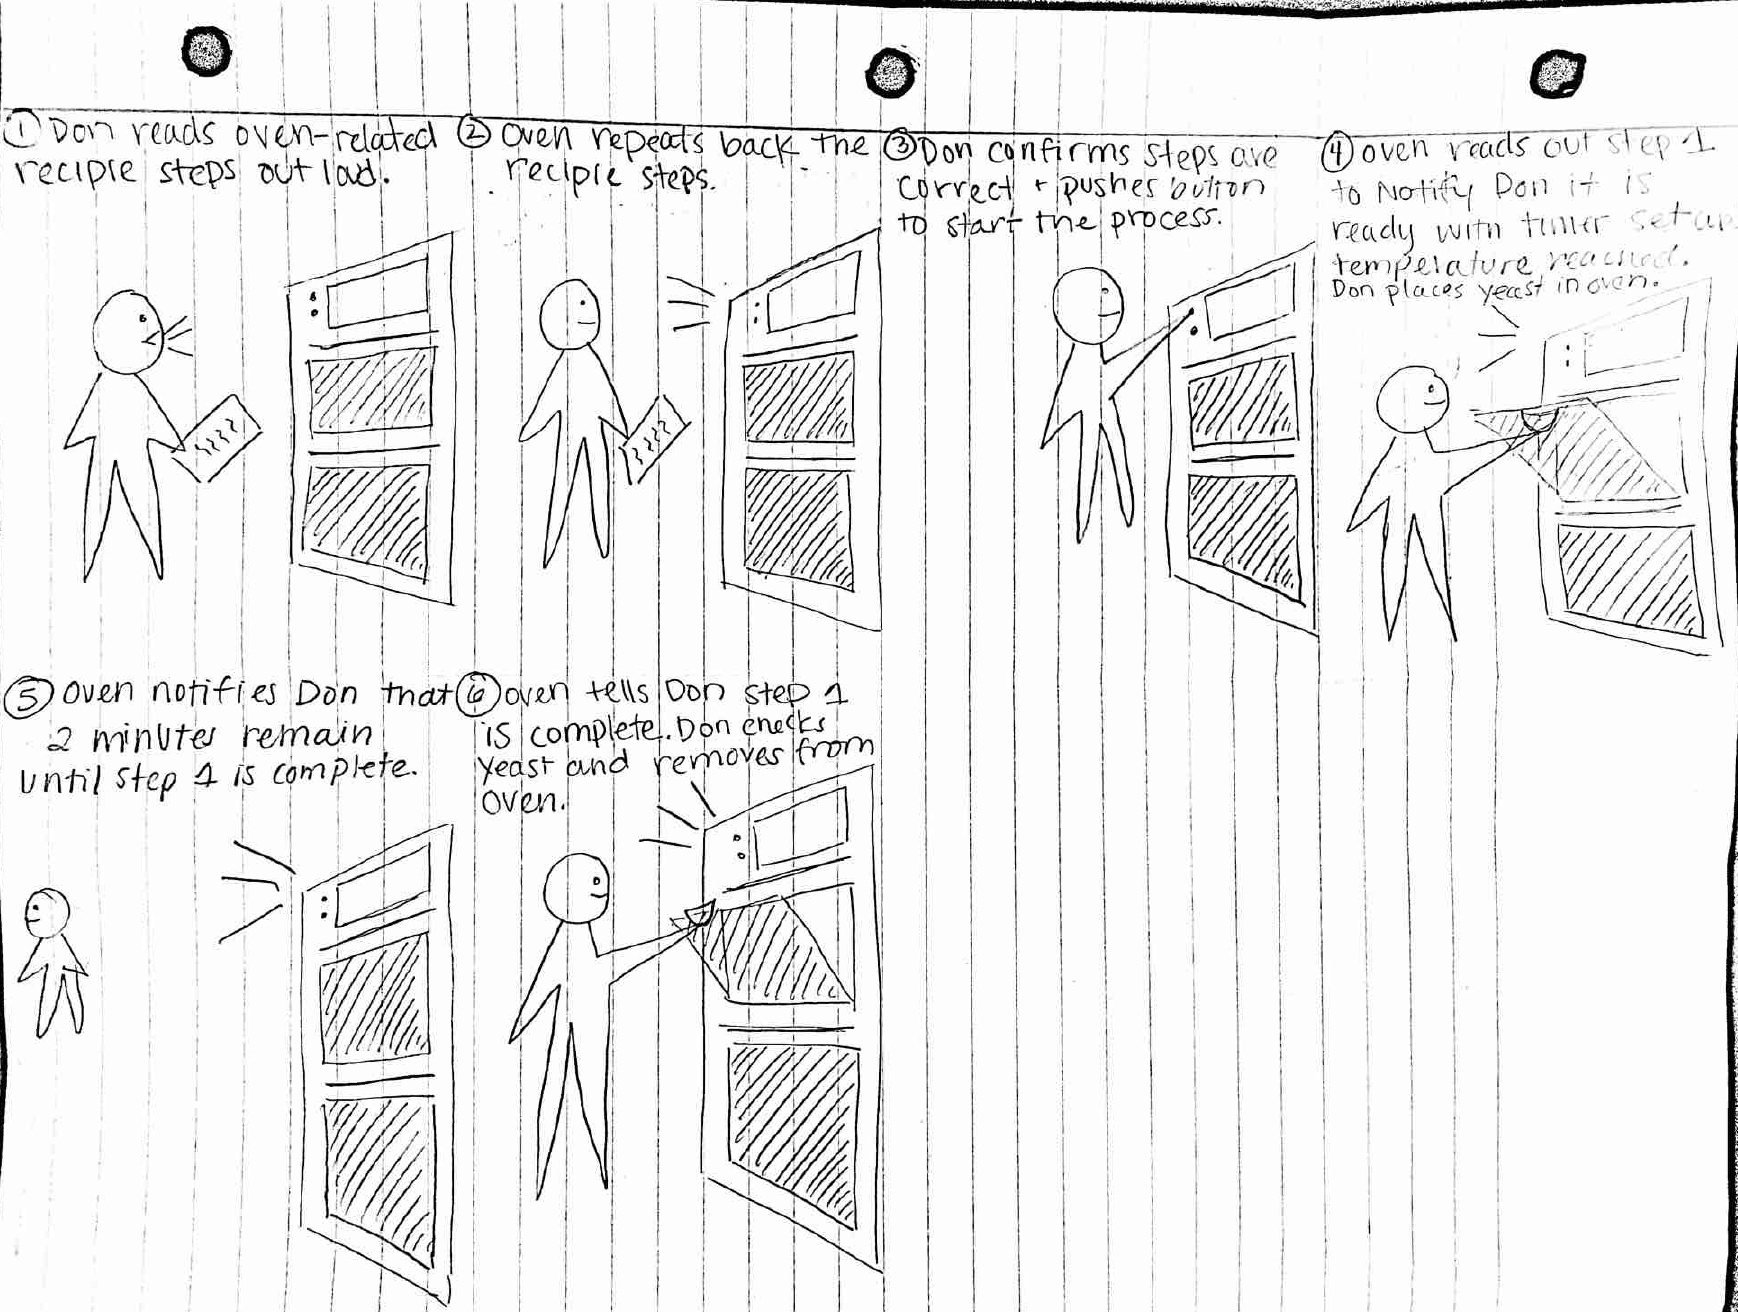 ① Don reads oven-related
recipie steps out loud.
② Oven repeats back the
recipie steps.
③ Don confirms steps are
correct + pushes button
to start the process.
④ oven reads out step 1
to Notify Don it is
ready with timer set up
temperature reached.
Don places yeast in oven.
⑤ Oven notifies Don that
2 minutes remain
until step 1 is complete.
⑥ oven tells Don step 1
is complete. Don checks
yeast and removes from
oven.